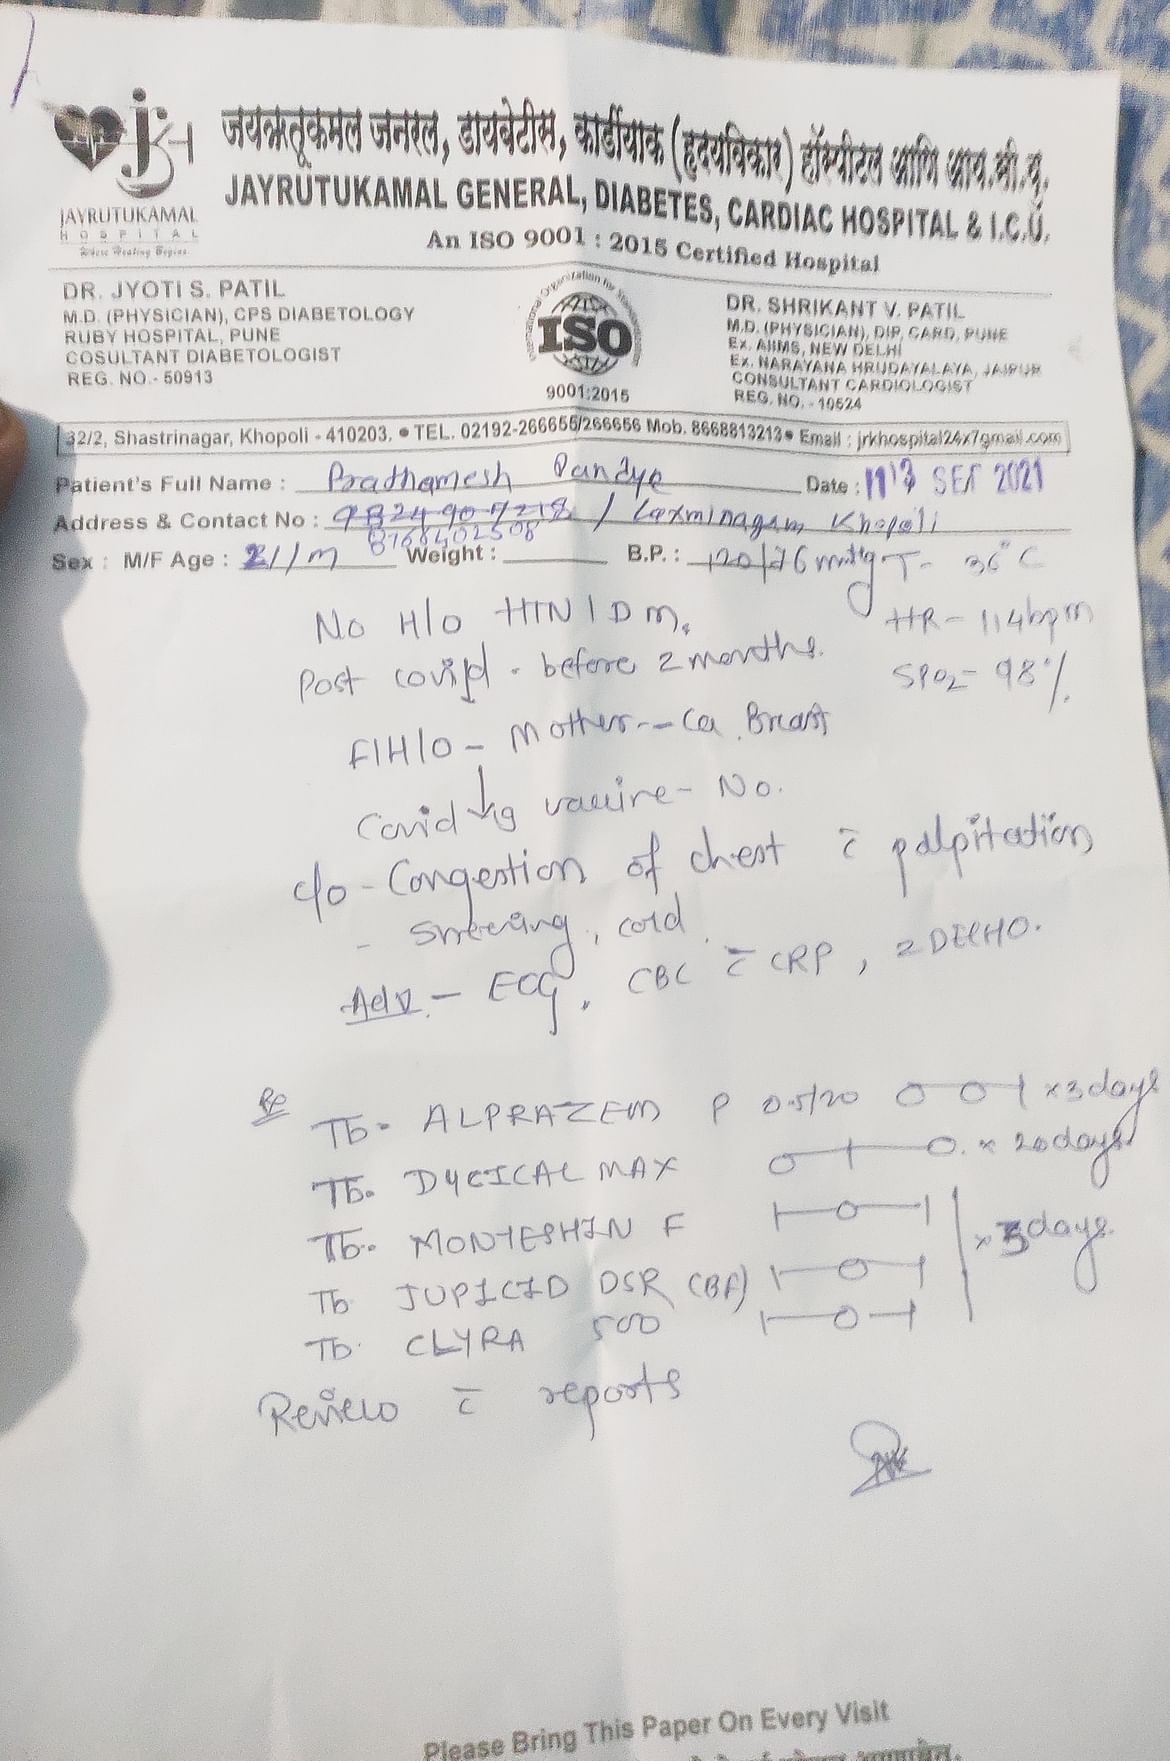 जयऋतूकमल जनरल, डायबेटीस, कार्डीयाक (हृदयविकार) हॉस्पीटल आणि आय.सी.यु.
JAYRUTUKAMAL GENERAL, DIABETES, CARDIAC HOSPITAL & I.C.U.
An ISO 9001 : 2015 Certified Hospital
JAYRUTUKAMAL
HOSPITAL
Where Healing Begins
DR. JYOTI S. PATIL
M.D. (PHYSICIAN), CPS DIABETOLOGY
RUBY HOSPITAL, PUNE
COSULTANT DIABETOLOGIST
REG. NO.- 50913
ISO
9001:2015
DR. SHRIKANT V. PATIL
M.D. (PHYSICIAN), DIP, CARD, PUNE
Ex. AIIMS, NEW DELHI
Ex. NARAYANA HRUDAYALAYA, JAIPUR
CONSULTANT CARDIOLOGIST
REG. NO. - 10524
32/2, Shastrinagar, Khopoli - 410203. • TEL. 02192-266655/266656 Mob. 8668813213 • Email : jrkhospital24x7gmail.com
Patient's Full Name : Prathamesh Pandye Date : 13 SEP 2021
Address & Contact No : / Laxminagar Khopoli
8768402508
Sex : M/F Age : 21/m Weight : B.P. : 120/76 mmHg T- 36°C
No H/o HTN / DM. HR - 114bpm
Post covid - before 2 months. SPO2 - 98%
F/H/O - Mother -- Ca Breast
Covid 19 vaccine - No.
c/o - Congestion of chest c̄ palpitation
- Sneezing, cold
Adv - ECG, CBC c̄ CRP, 2DECHO.
Rx
Tb. ALPRAZEM P 0.5/20 0—0—1 x 3 days
Tb. DYCICAL MAX 0—1—0 x 20 days
Tb. MONTESHIN F 1—0—1
Tb JUPICID DSR (BF) 1—0—1 x 5 days
Tb. CLYRA 500 1—0—1
Review c̄ reports
Please Bring This Paper On Every Visit